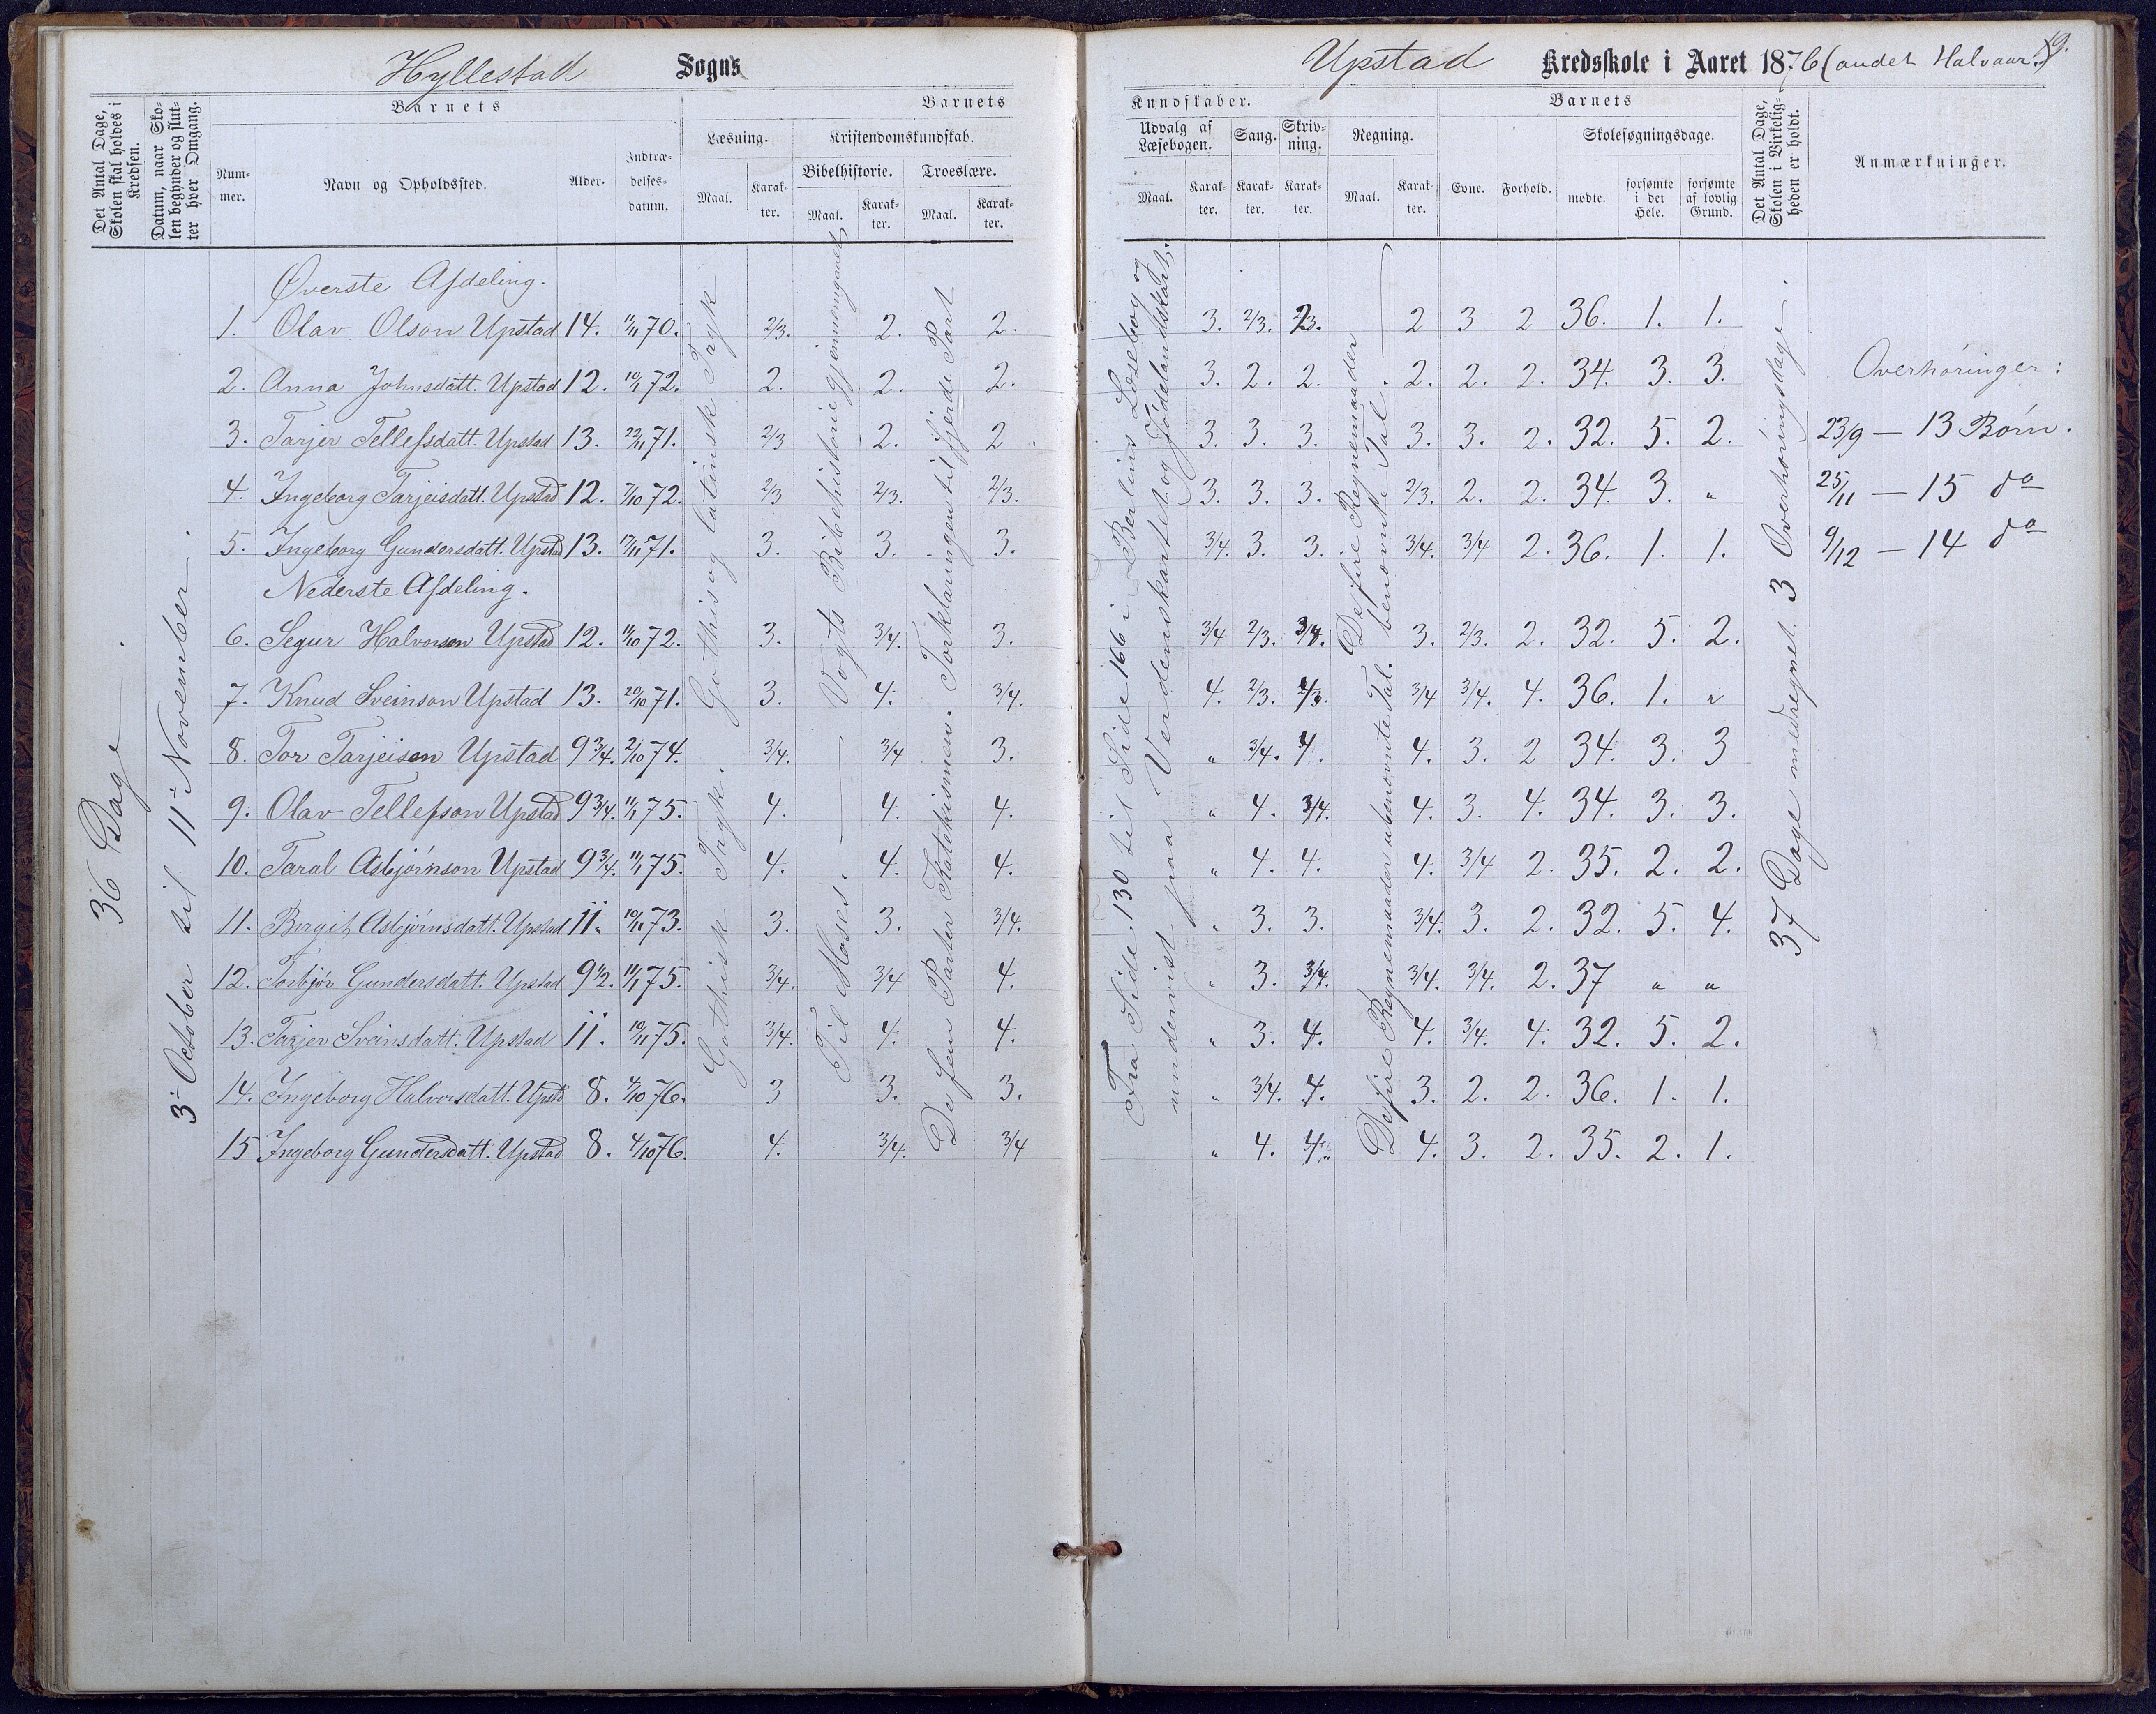 Hyllestad Sogns
Det Antal Dage, Skolen skal holdes i Kredsen.
Datum, naar Skolen begynder og slutter hver Omgang.
Barnets
Nummer.
Navn og Opholdssted.
Alder.
Indtrædelsesdatum.
Barnets
Læsning.
Maal.
Karakter.
Kristendomskundskab.
Bibelhistorie.
Maal.
Karakter.
Troeslære.
Maal.
Karakter.
36 Dage
3- October til 11- November.
Gothisk og latinsk Tryk
Gothisk Tryk.
Vogts Bibelhistorie gjennemgaaet
Til Moses.
Forklaringen til fjerde Part
De fem Parter Katekismen.
Øverste Afdeling.
1. Olav Olson Upstad 14. 11/11 70. 2/3. 2. 2.
2. Anna Johnsdatt. Upstad 12. 10/1 72. 2. 2. 2.
3. Tarjer Tellefsdatt. Upstad 13. 22/11 71. 2/3 2. 2.
4. Ingeborg Tarjeisdatt. Upstad 12. 7/10 72. 2/3 2/3. 2/3.
5. Ingeborg Gundersdatt. Upstad 13. 17/11 71. 3. 3. 3.
Nederste Afdeling.
6. Segur Halvorson Upstad 12. 11/10 72. 3. 3/4. 3.
7. Knud Sveinson Upstad 13. 20/10 71. 3. 4. 3/4.
8. Tor Tarjeisen Upstad 9 3/4. 2/10 74. 3/4. 3/4 3.
9. Olav Tellefson Upstad 9 3/4. 11/1 75. 4. 4. 4.
10. Taral Asbjørnson Upstad 9 3/4. 11/1 75. 4. 4. 4.
11. Birgit Asbjørnsdatt. Upstad 11. 10/11 73. 3. 3. 3/4.
12. Torbjør Gundersdatt. Upstad 9 1/2. 11/1 75. 3/4. 3/4 4.
13. Tarjer Sveinsdatt. Upstad 11. 10/11 75. 3/4. 4. 4.
14. Ingeborg Halvorsdatt. Upstd 8. 4/10 76. 3 3. 3.
15 Ingeborg Gundersdatt. Upstad 8. 4/10 76. 4. 3/4. 3/4
Upstad Kredsskole i Aaret 1876 (andet Halvaar.) 19.
Kundskaber.
Udvalg af Læsebogen.
Maal.
Karakter.
Sang.
Karakter.
Skrivning.
Karakter.
Regning.
Maal.
Karakter.
Barnets
Evne.
Forhold.
Skolesøgningsdage.
mødte.
forsømte i det Hele.
forsømte af lovlig Grund.
Det Antal Dage, Skolen i Virkeligheden er holdt.
Anmærkninger.
Fra Side 130 til Side 166 i Berlins Læsebog og
undervist paa Verdenskartet og Jødelandskart.
De fire Regnemaader
benævnte Tal
De fire Regnemaader ubenævnte Tal.
37 Dage medregnet 3 Overhøringsdage.
3. 2/3. 2/3. 2 3 2 36. 1. 1.
3. 2. 2. 2. 2. 2. 34. 3. 3.
3. 3. 3. 3. 3. 2. 32. 5. 2.
3. 3. 3. 2/3. 2. 2. 34. 3. "
3/4. 3. 3. 3/4. 3/4 2. 36. 1. 1.
3/4 2/3. 3/4. 3. 2/3. 2. 32. 5. 2.
4. 2/3. 3/4 3/4. 4. 36. 1. "
" 3/4. 4. 4. 3. 2 34. 3. 3
" 4. 3/4. 4. 3. 4. 34. 3. 3.
" 4. 4. 4. 3/4 2. 35. 2. 2.
" 3. 3. 3/4. 3. 2. 32. 5. 4.
" 3. 3/4. 3/4. 3/4. 2. 37 " "
" 3. 4. 4. 3/4. 4. 32. 5. 2.
" 3/4. 4. 3. 2. 2. 36. 1. 1.
" 4. 4. 4. 3. 2. 35. 2. 1.
Overhøringer:
23/9 — 13 Børn.
25/11 — 15 do
9/12 — 14 do